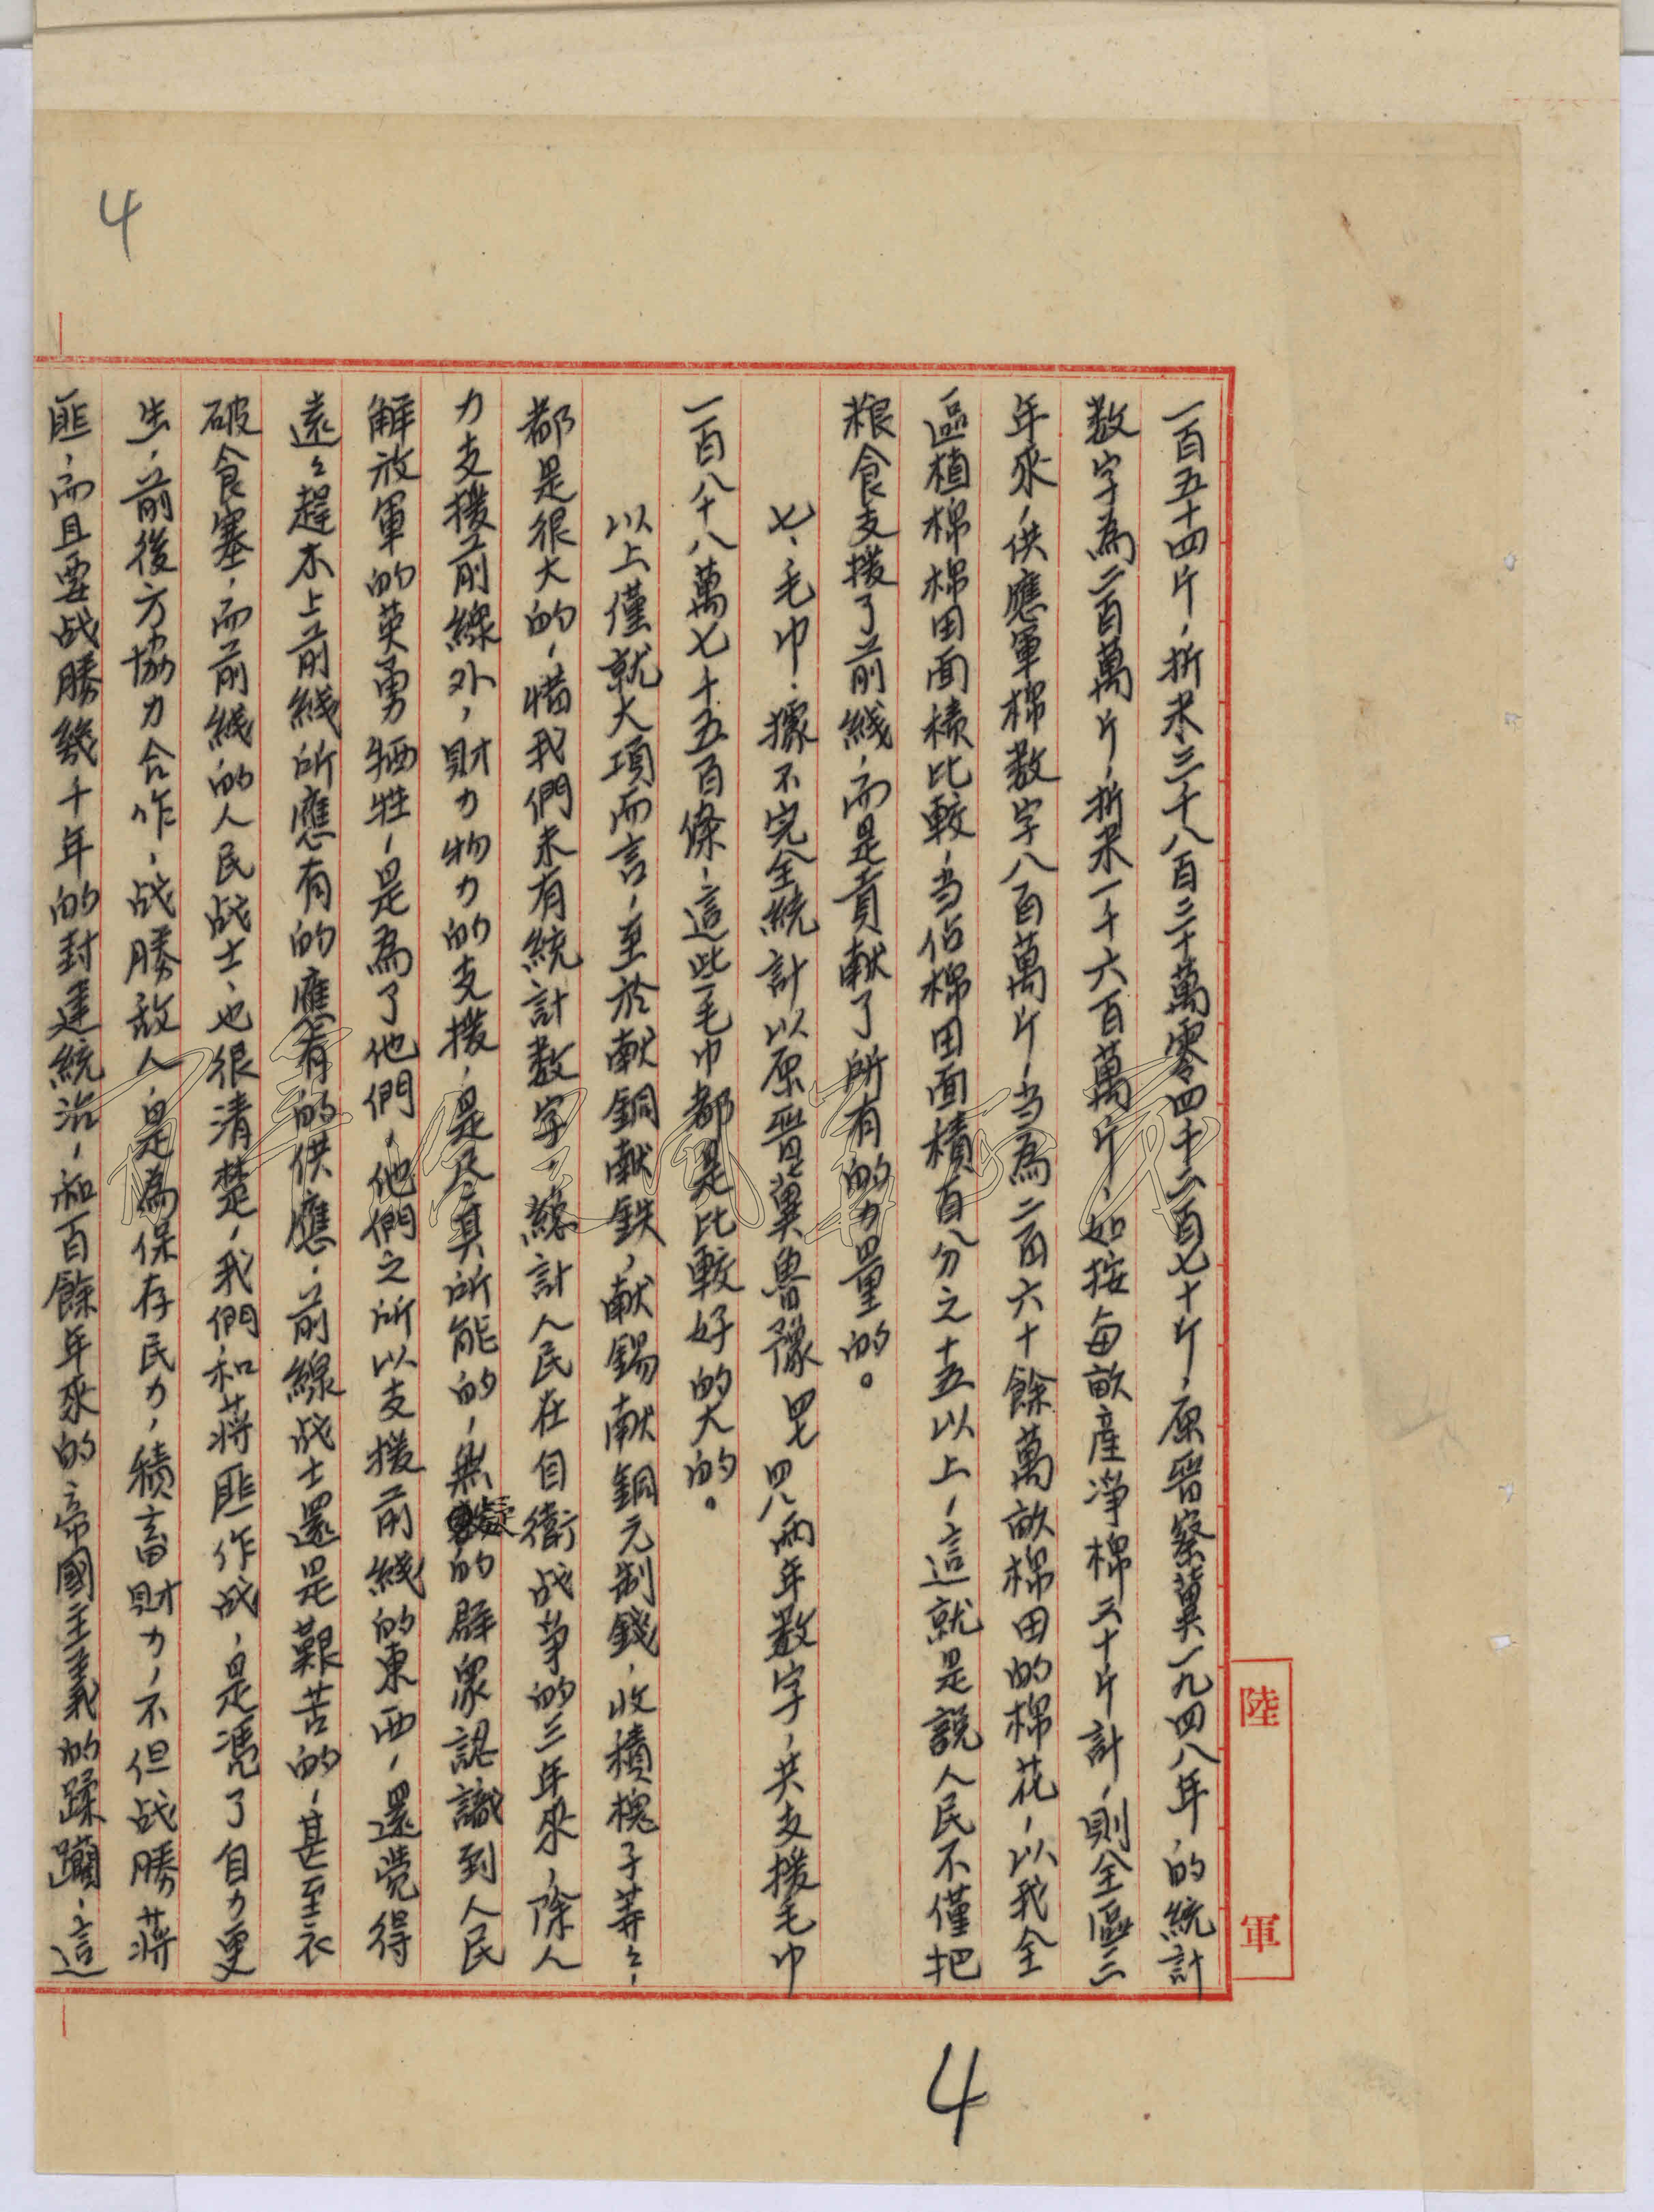 一百五十四斤，折米三千八百三十萬零四千六百七十斤，原晉察冀一九四八年，的統計
数字為二百萬斤，折米一千六百萬斤，如按每畝產淨棉三十斤計，則全區三
年來，供應軍棉数字八百萬斤，当為二百六十餘萬畝棉田的棉花，以我全
區植棉棉田面積比較，当佔棉田面積百分之十五以上，這就是說人民不僅把
粮食支援了前綫，而是貢献了所有的力量的。
七、毛巾：據不完全統計以原晉冀魯豫四七四八兩年数字，共支援毛巾
一百八十八萬七千五百條，這些毛巾都是比較好的大的。
以上僅就大項而言，至於献銅献鉄，献錫献銅元制錢，收積槐子等々，
都是很大的，惜我們未有統計数字，總計人民在自衛战争的三年來，除人
力支援前線外，財力物力的支援，是尽其所能的，無疑的群众認識到人民
解放軍的英勇牺牲，是為了他們，他們之所以支援前綫的東西，還覺得
遠々趕不上前綫所應有的應有的供應，前線战士還是艱苦的，甚至衣
破食寒，而前綫的人民战士，也很清楚，我們和蒋匪作战，是凭了自力更
生，前後方協力合作，战勝敌人，是為保存民力，積畜財力，不但战勝蒋
匪，而且要战勝幾千年的封建統治，和百餘年來的帝國主義的蹂躪，這
陸軍
4
4